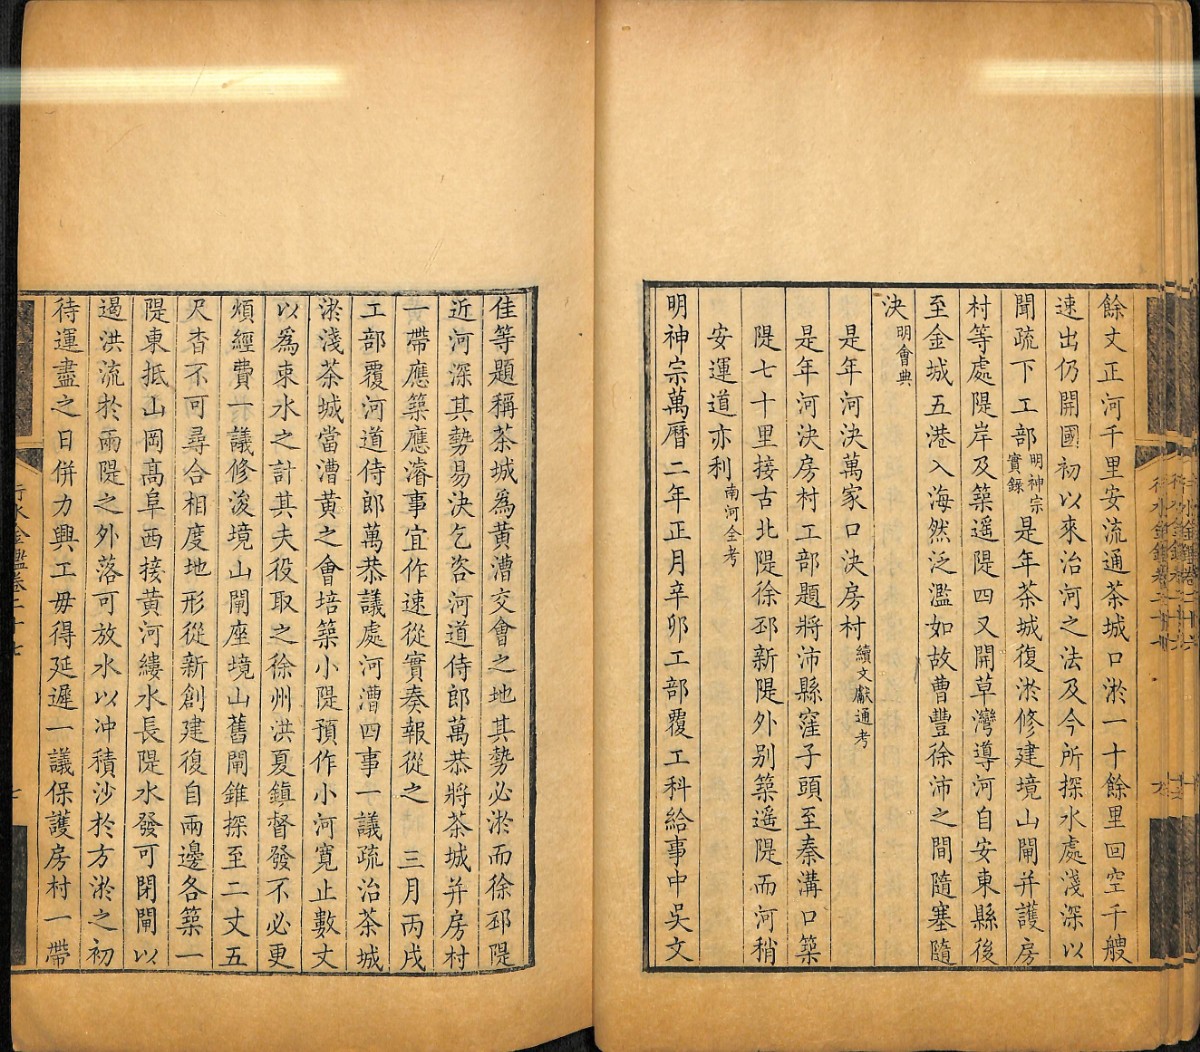 餘丈正河千里安流通茶城口淤一十餘里回空千艘
速出仍開國初以來治河之法及今所探水處淺深以
聞疏下工部明神宗實錄是年茶城復淤修建境山閘并護房
村等處隄岸及築遥隄四又開草灣導河自安東縣後
至金城五港入海然泛濫如故曹豐徐沛之間隨塞隨
決明會典
是年河決萬家口決房村續文獻通考
是年河決房村工部題將沛縣窪子頭至秦溝口築
隄七十里接古北隄徐邳新隄外别築遥隄而河稍
安運道亦利南河全考
明神宗萬曆二年正月辛卯工部覆工科給事中吳文
佳等題稱茶城爲黄漕交會之地其勢必淤而徐邳隄
近河深其勢易決乞咨河道侍郎萬恭將茶城并房村
一帶應築應濬事宜作速從實奏報從之 三月丙戌
工部覆河道侍郎萬恭議處河漕四事一議疏治茶城
淤淺茶城當漕黄之會培築小隄預作小河寬止數丈
以爲束水之計其夫役取之徐州洪夏鎮督發不必更
煩經費一議修浚境山閘座境山舊閘錐探至二丈五
尺杳不可尋合相度地形從新創建復自兩邊各築一
隄東抵山岡高阜西接黄河縷水長隄水發可閉閘以
遏洪流於兩隄之外落可放水以冲積沙於方淤之初
待運盡之日併力興工毋得延遲一議保護房村一帶
行水金鑑卷二十七
七